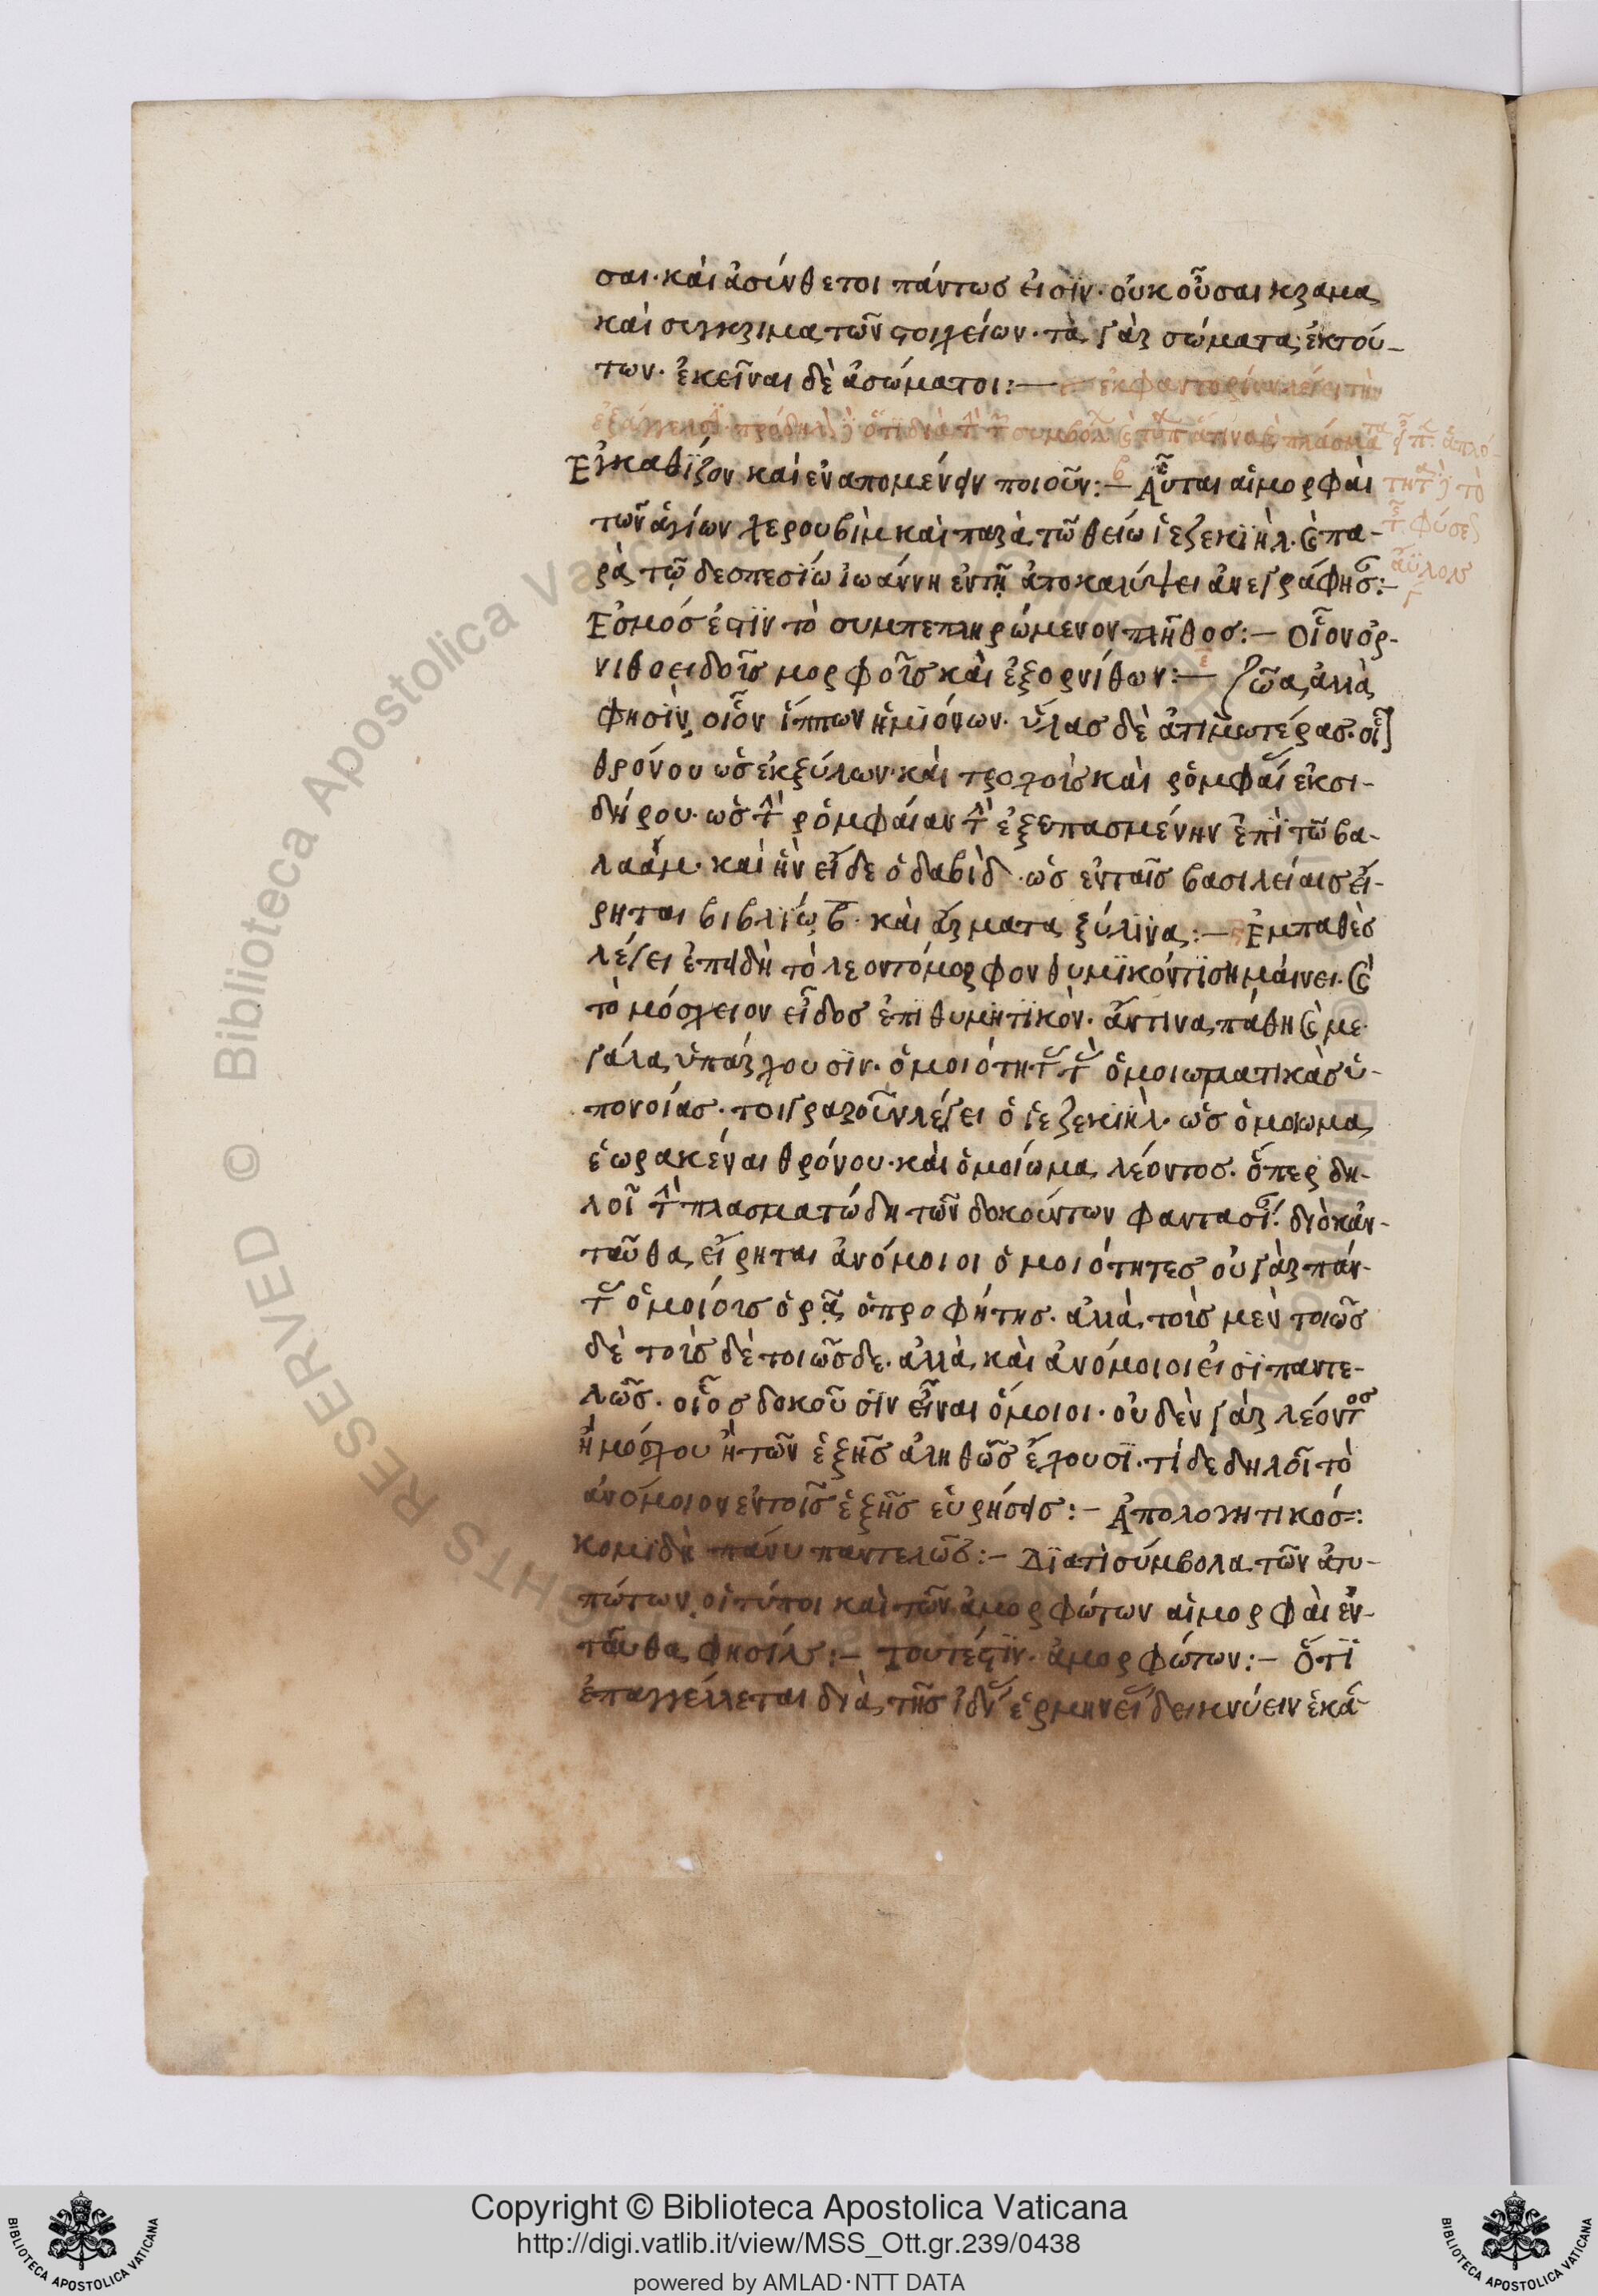 σαι· καὶ ἀσύνθετοι πάντως εἰσὶν· οὐκ οὖσαι κρᾶμα
καὶ συγκριμα τῶν στοιχείων· τὰ γὰρ σώματα, ἐκ τού-
των· ἐκεῖναι δὲ ἀσώματοι:— ἐκφαντορίαν λέγει τὴν
Εγκαθίζον καὶ ἐναπομένειν ποιοῦν:— Αὗται αἱ μορφαὶ
τῶν ἁγίων χερουβὶμ καὶ παρὰ τῶ θείω ἰεζεκιὴλ· καὶ πα-
ρὰ τῶ θεσπεσίω ἰωάννη ἐν τῆ ἀποκαλύψει ἀνεγράφησ:—
Εσμός ἐστὶν τὸ συμπεπληρώμενον πλῆθος:— οἷον ὀρ-
νιθοειδοῖς μορφοῖς καὶ ἐξ ορνίθων:— ζῶα, ἀλλὰ
φησὶν, οἷον ἵππων ἡμιόνων· ὕλας δὲ ἀτιμωτέρας· οἷ
θρόνου ὡς ἐκ ξύλων· καὶ τροχοῖς καὶ ῥομφαί ἐκ σι-
δήρου· ὡς τ ῥομφαίαν τ ἐξεσπασμένην ἐπὶ τῶ βα-
λαάμ· καὶ ἣν εἶδε ὁ δαβὶδ· ὡς ἐν ταῖς βασιλείαις εἴ-
ρηται βιβλίω β· καὶ ἅρματα ξύλινα:— Ἐμπαθὲς
λέγει ἐπειδὴ τὸ λεοντόμορφον θυμικόν τι σημαίνει· καὶ
τὸ μόσχειον εἶδος ἐπιθυμητικὸν· ἅντινα, πάθη καὶ με-
γάλα, ὑπάρχουσιν· ὁμοιότητ τ ὁμοιωματικὰς ὑ-
πονοίας· τοιγαροῦν λέγει ὁ ἰεζεκιὴλ· ὡς ὁμοίωμα
ἑωρακέναι θρόνου· καὶ ὁμοίωμα λέοντος· ὅπερ δη-
λοῖ τ πλασματώδη τῶν δοκούντων φαντασί· διὸ κἀν-
ταῦθα, εἴρηται ἀνόμοιοι ὁμοιότητες οὐ γὰρ πάν-
τ ὁμοίοις ὁρᾶ, ὁ προφήτης· ἀλλὰ, τοῖς μὲν τοιῶς
δὲ τοῖς δὲ τοιῶσδε· ἀλλὰ, καὶ ἀνόμοιοι εἰσὶ παντε-
λῶς· οἷος δοκοῦσιν εἶναι ὅμοιοι· οὐδὲν γὰρ λέοντος
ἢ μόσχου ἢ τῶν ἑξῆς ἀληθῶς ἔχουσι· τί δε δηλοῖ τὸ
ἀνόμοιον ἐν τοῖς ἑξῆς εὑρήσεις:— Ἀπολογητικός:
κομιδῆ πάνυ παντελῶς:— Διατὶ σύμβολα τῶν ἀτυ-
πώτων οἱ τύποι καὶ τῶν ἀμορφώτων αἱ μορφαὶ ἐν-
ταῦθα, φησίν:— Τουτέστιν· ἀμορφώτων:— ὅτι
ἐπαγγέλλεται διὰ, τῆς ἰδ ἑρμηνεί δεικνύειν ἑκά-
Copyright © Biblioteca Apostolica Vaticana
http://digi.vatlib.it/view/MSS_Ott.gr.239/0438
powered by AMLAD·NTT DATA
BIBLIOTECA APOSTOLICA VATICANA
BIBLIOTECA APOSTOLICA VATICANA